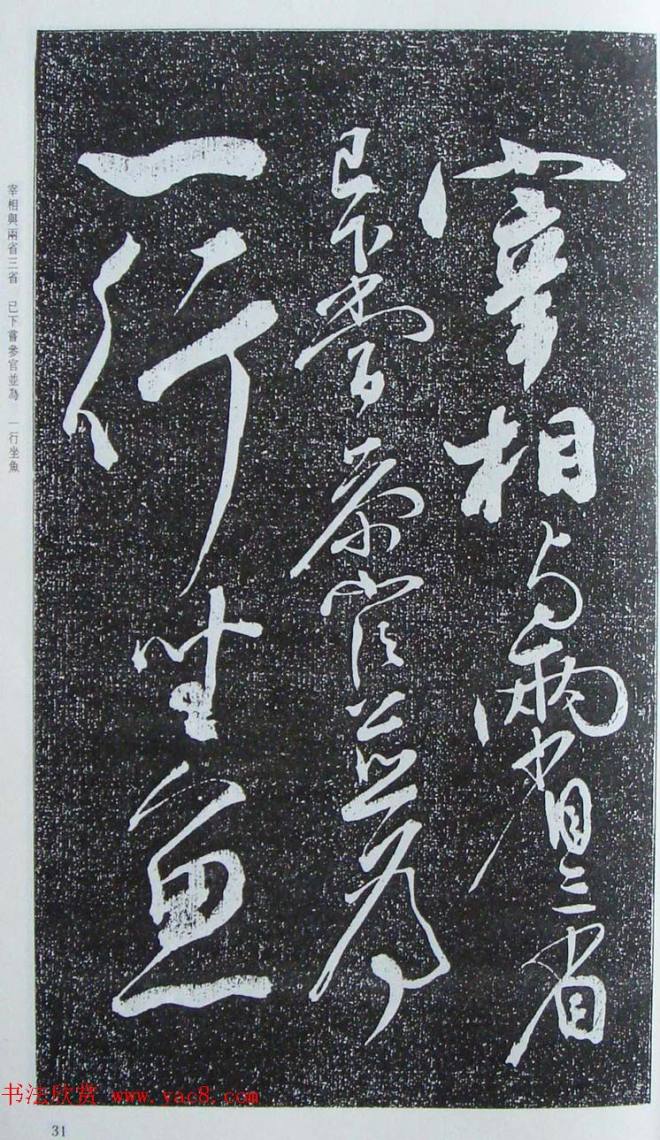 宰相与兩省三省
已下嘗叅官並為
一行坐魚
宰相與兩省三省 已下嘗參官並為 一行坐魚
书法欣赏 www.yac8.com
31